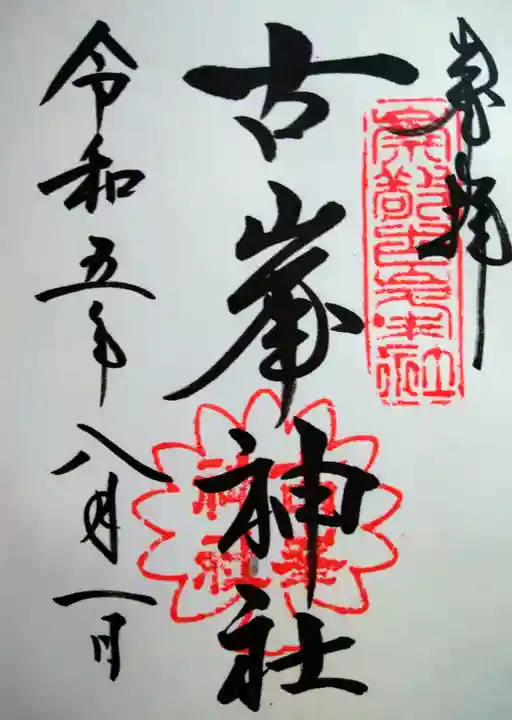 奉拝
古峯神社
古峯
神社
令和五年八月一日